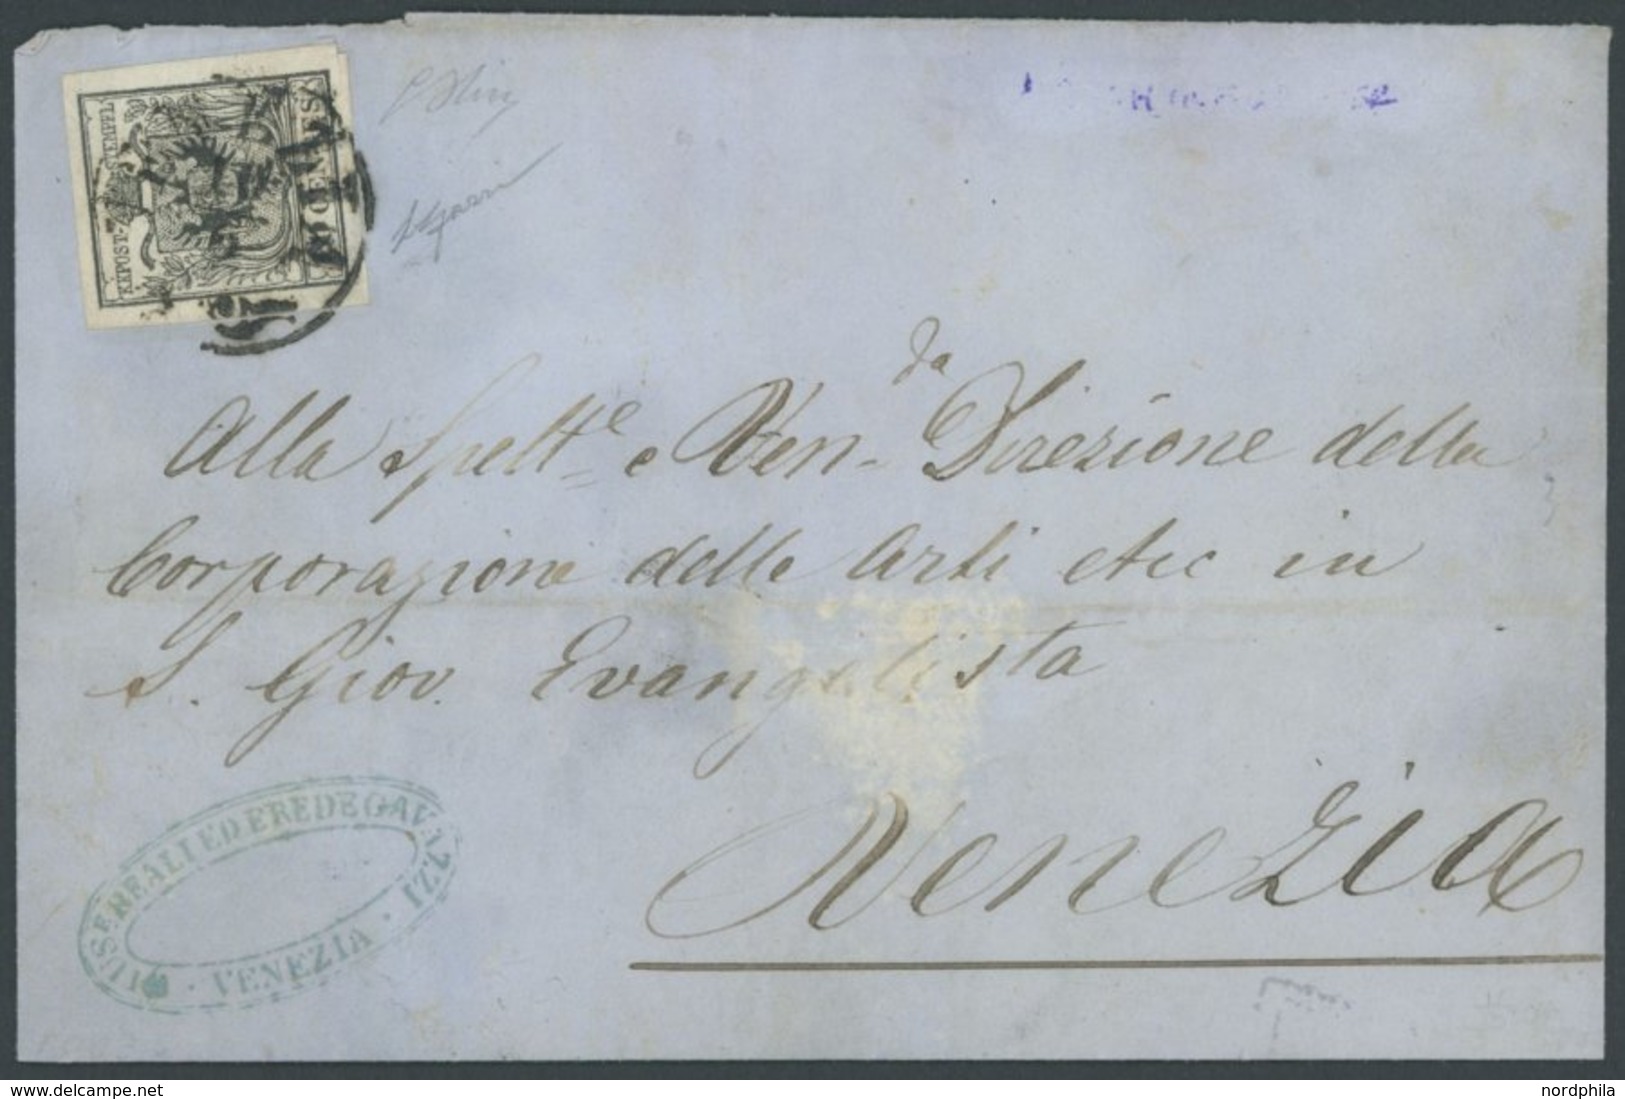 KKPOST-STEMPEL
10 CENTES
Alla Spelt.e e Ven.da Direzione della
Corporazione delle Arti etc in
S. Giov. Evangelista
Venezia
GIUSE REALI ED EREDE GAVAZZI
· VENEZIA ·
www.delcampe.net
nordphila